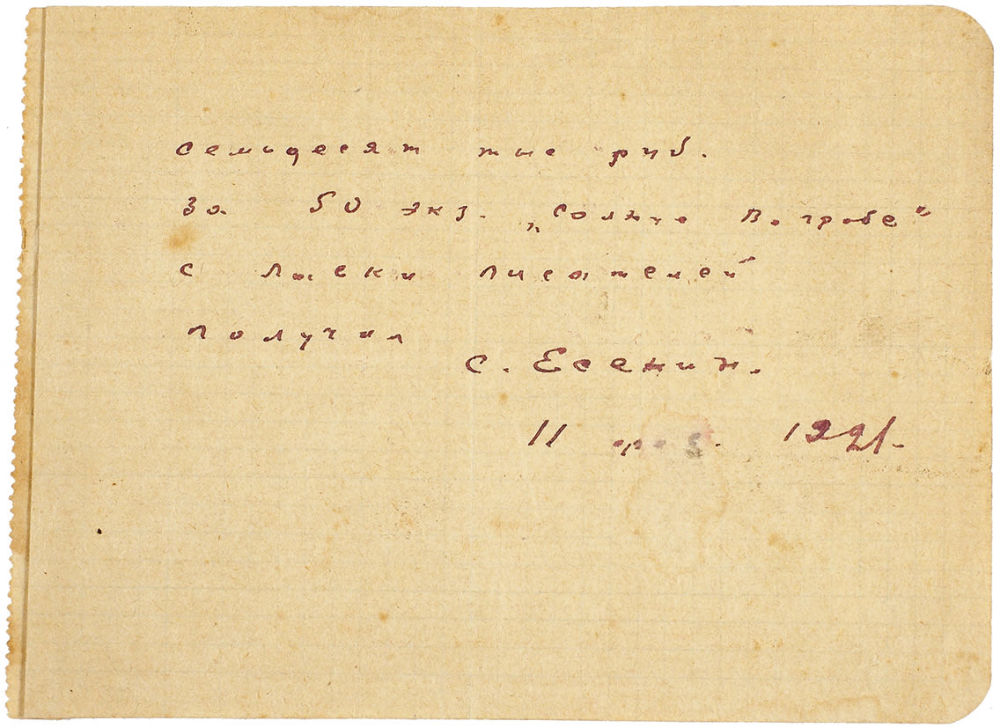 семьдесят тыс руб.
за 50 экз. „Солнце в гробе"
с лавки писателей
получил
С. Есенин.
11 1921.